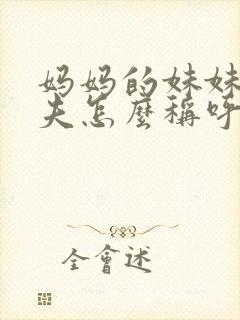 妈妈的妹妹
夫怎麼稱呼
全會述